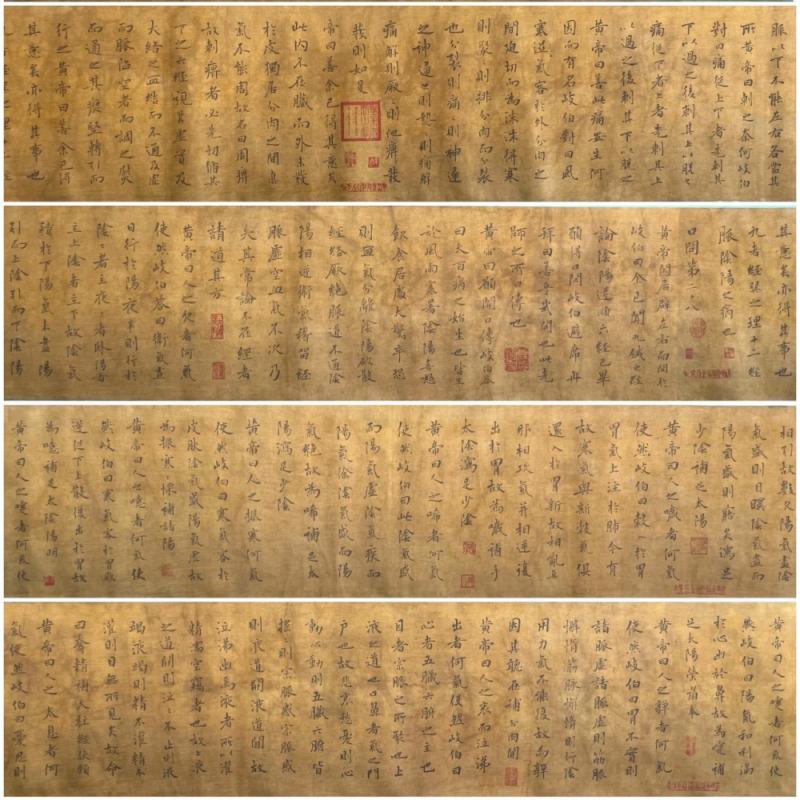 脈以下不能左右各當其
所黃帝曰刺之奈何歧伯
對曰痛從上下者先刺其
下以過之後刺其上以脫之
痛從下上者先刺其上
以過之後刺其下以脫之
黃帝曰善此痛安生何
因而有名歧伯對曰風
寒溼氣客於外分肉之
間迫切而為沫沫得寒
則聚聚則排分肉而分裂
也分裂則痛痛則神歸
之神歸之則熱熱則痛解
痛解則厥厥則他痹發
發則如是
帝曰善余已得其意矣
此內不在臟而外未發
於皮獨居分肉之間真
氣不能周故名曰周痹
故刺痹者必先切循其
下之六經視其虛實及
大絡之血結而不通及虛
而脈陷空者而調之熨
而通之其瘈堅轉引而
行之黃帝曰善余已得
其意矣亦得其事也
九者經巽之理十二經
其意矣亦得其事也
九者經巽之理十二經
脈陰陽之病也
口問第二十八
黃帝閒居辟左右而問於
岐伯曰余已聞九鍼之經
論陰陽逆順六經已畢
願得口問岐伯避席再
拜曰善乎哉問也此先
師之所口傳也
黃帝曰願聞口傳岐伯答
曰夫百病之始生也皆生
於風雨寒暑陰陽喜怒
飲食居處大驚卒恐
則血氣分離陰陽破散
經絡厥絕脈道不通陰
陽相逆衛氣稽留經
脈虛空血氣不次乃
失其常論不在經者
請道其方
黃帝曰人之欠者何氣
使然岐伯答曰衛氣晝
日行於陽夜半則行於
陰陰者主夜夜者臥陽者
主上陰者主下故陰氣
積於下陽氣未盡陽
引而上陰引而下陰陽
相引故數欠陽氣盡陰
氣盛則目瞑陰氣盡而
陽氣盛則寤矣瀉足
少陰補足太陽
黃帝曰人之噦者何氣
使然岐伯曰穀入於胃
胃氣上注於肺今有
故寒氣與新穀氣俱
還入於胃新故相亂真
邪相攻氣并相逆復
出於胃故為噦補手
太陰瀉足少陰
黃帝曰人之唏者何氣
使然岐伯曰此陰氣盛
而陽氣虛陰氣疾而
陽氣徐陰氣盛而陽
氣絕故為唏補足太
陽瀉足少陰
黃帝曰人之振寒何氣
使然岐伯曰寒氣客於
皮膚陰氣盛陽氣虛故
為振寒寒慄補諸陽
黃帝曰人之噫者何氣使
然岐伯曰寒氣客於胃厥
逆從下上散復出於胃故
為噫補足太陰陽明
黃帝曰人之嚏者何氣使
黃帝曰人之嚏者何氣使
然岐伯曰陽氣和利滿
於心出於鼻故為嚏補
足太陽榮眉本
黃帝曰人之嚲者何氣
使然岐伯曰胃不實則
諸脈虛諸脈虛則筋脈
懈惰筋脈懈惰則行陰
用力氣不能復故為嚲
因其所在補分肉間
黃帝曰人之哀而泣涕
出者何氣使然岐伯曰
心者五臟六腑之主也
目者宗脈之所聚也上
液之道也口鼻者氣之門
戶也故悲哀愁憂則心
動心動則五臟六腑皆
搖搖則宗脈感宗脈感
則液道開液道開故
泣涕出焉液者所以灌
精濡空竅者也故上液
之道開則泣泣不止則液
竭液竭則精不灌精不
灌則目無所見矣故命
曰奪精補天柱經俠頸
黃帝曰人之太息者何
氣使然岐伯曰憂思則